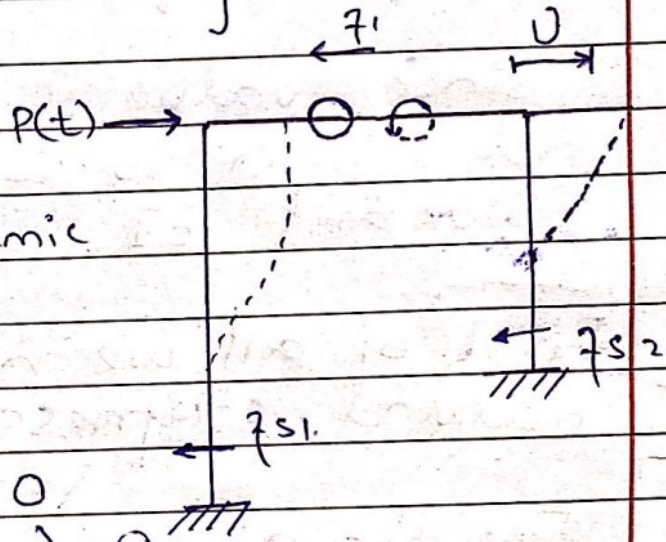 fI
U
P(t)
mic
fS2
fS1.
O